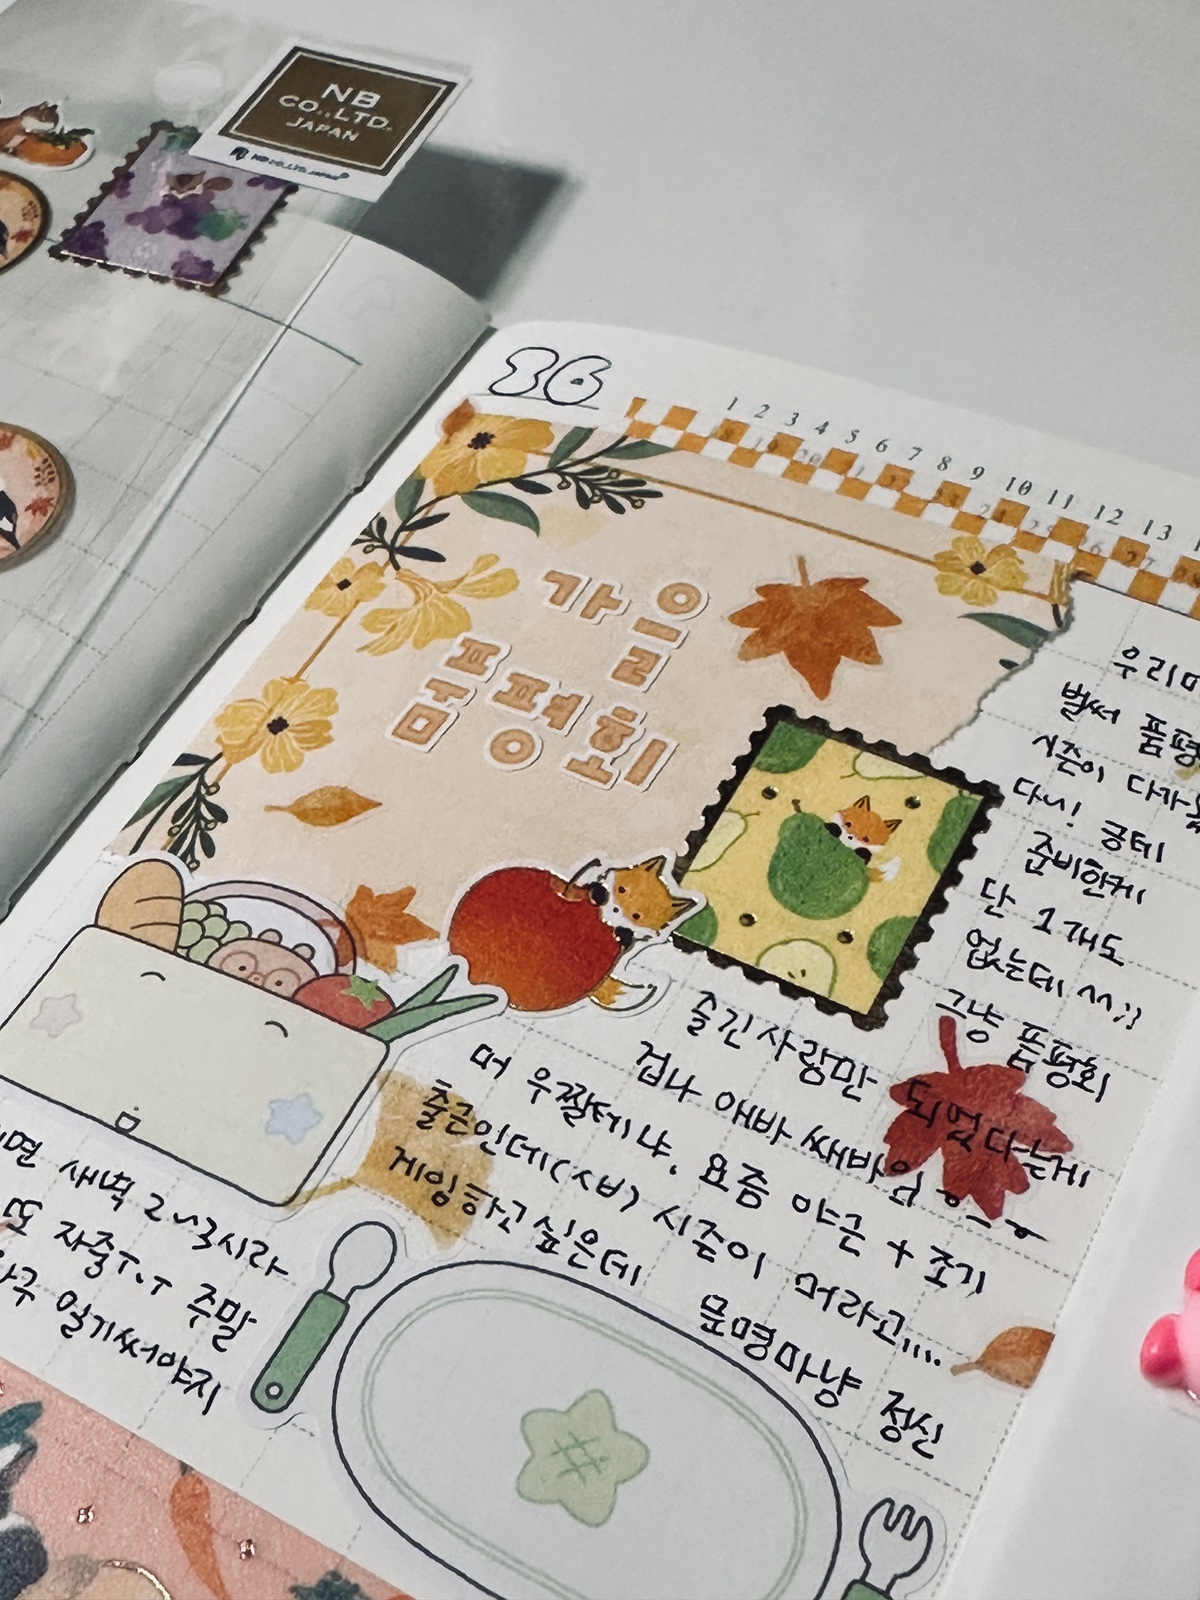 NB
CO.,LTD.
JAPAN
NB CO.,LTD. JAPAN
36
1 2 3 4 5 6 7 8 9 10 11 12 13
가을
폼평회
우리
벌써 폼평
시즌이 다가
다니! 긍데
준비한게
단 1개도
없는데 ^^;;
그냥 폼평회
즐긴 사람만 되었다는게
겁나 애바쌔바임 ㅎ-ㅎ
머 우짤테냐. 요즘 야근 + 조기
출근인데(ㅅㅂ) 시즌이 머라고....
게임하고싶은데 문명마냥 정신
면 새벽 2~3시라
또 자줄ㅜ.ㅜ 주말
일기써야지